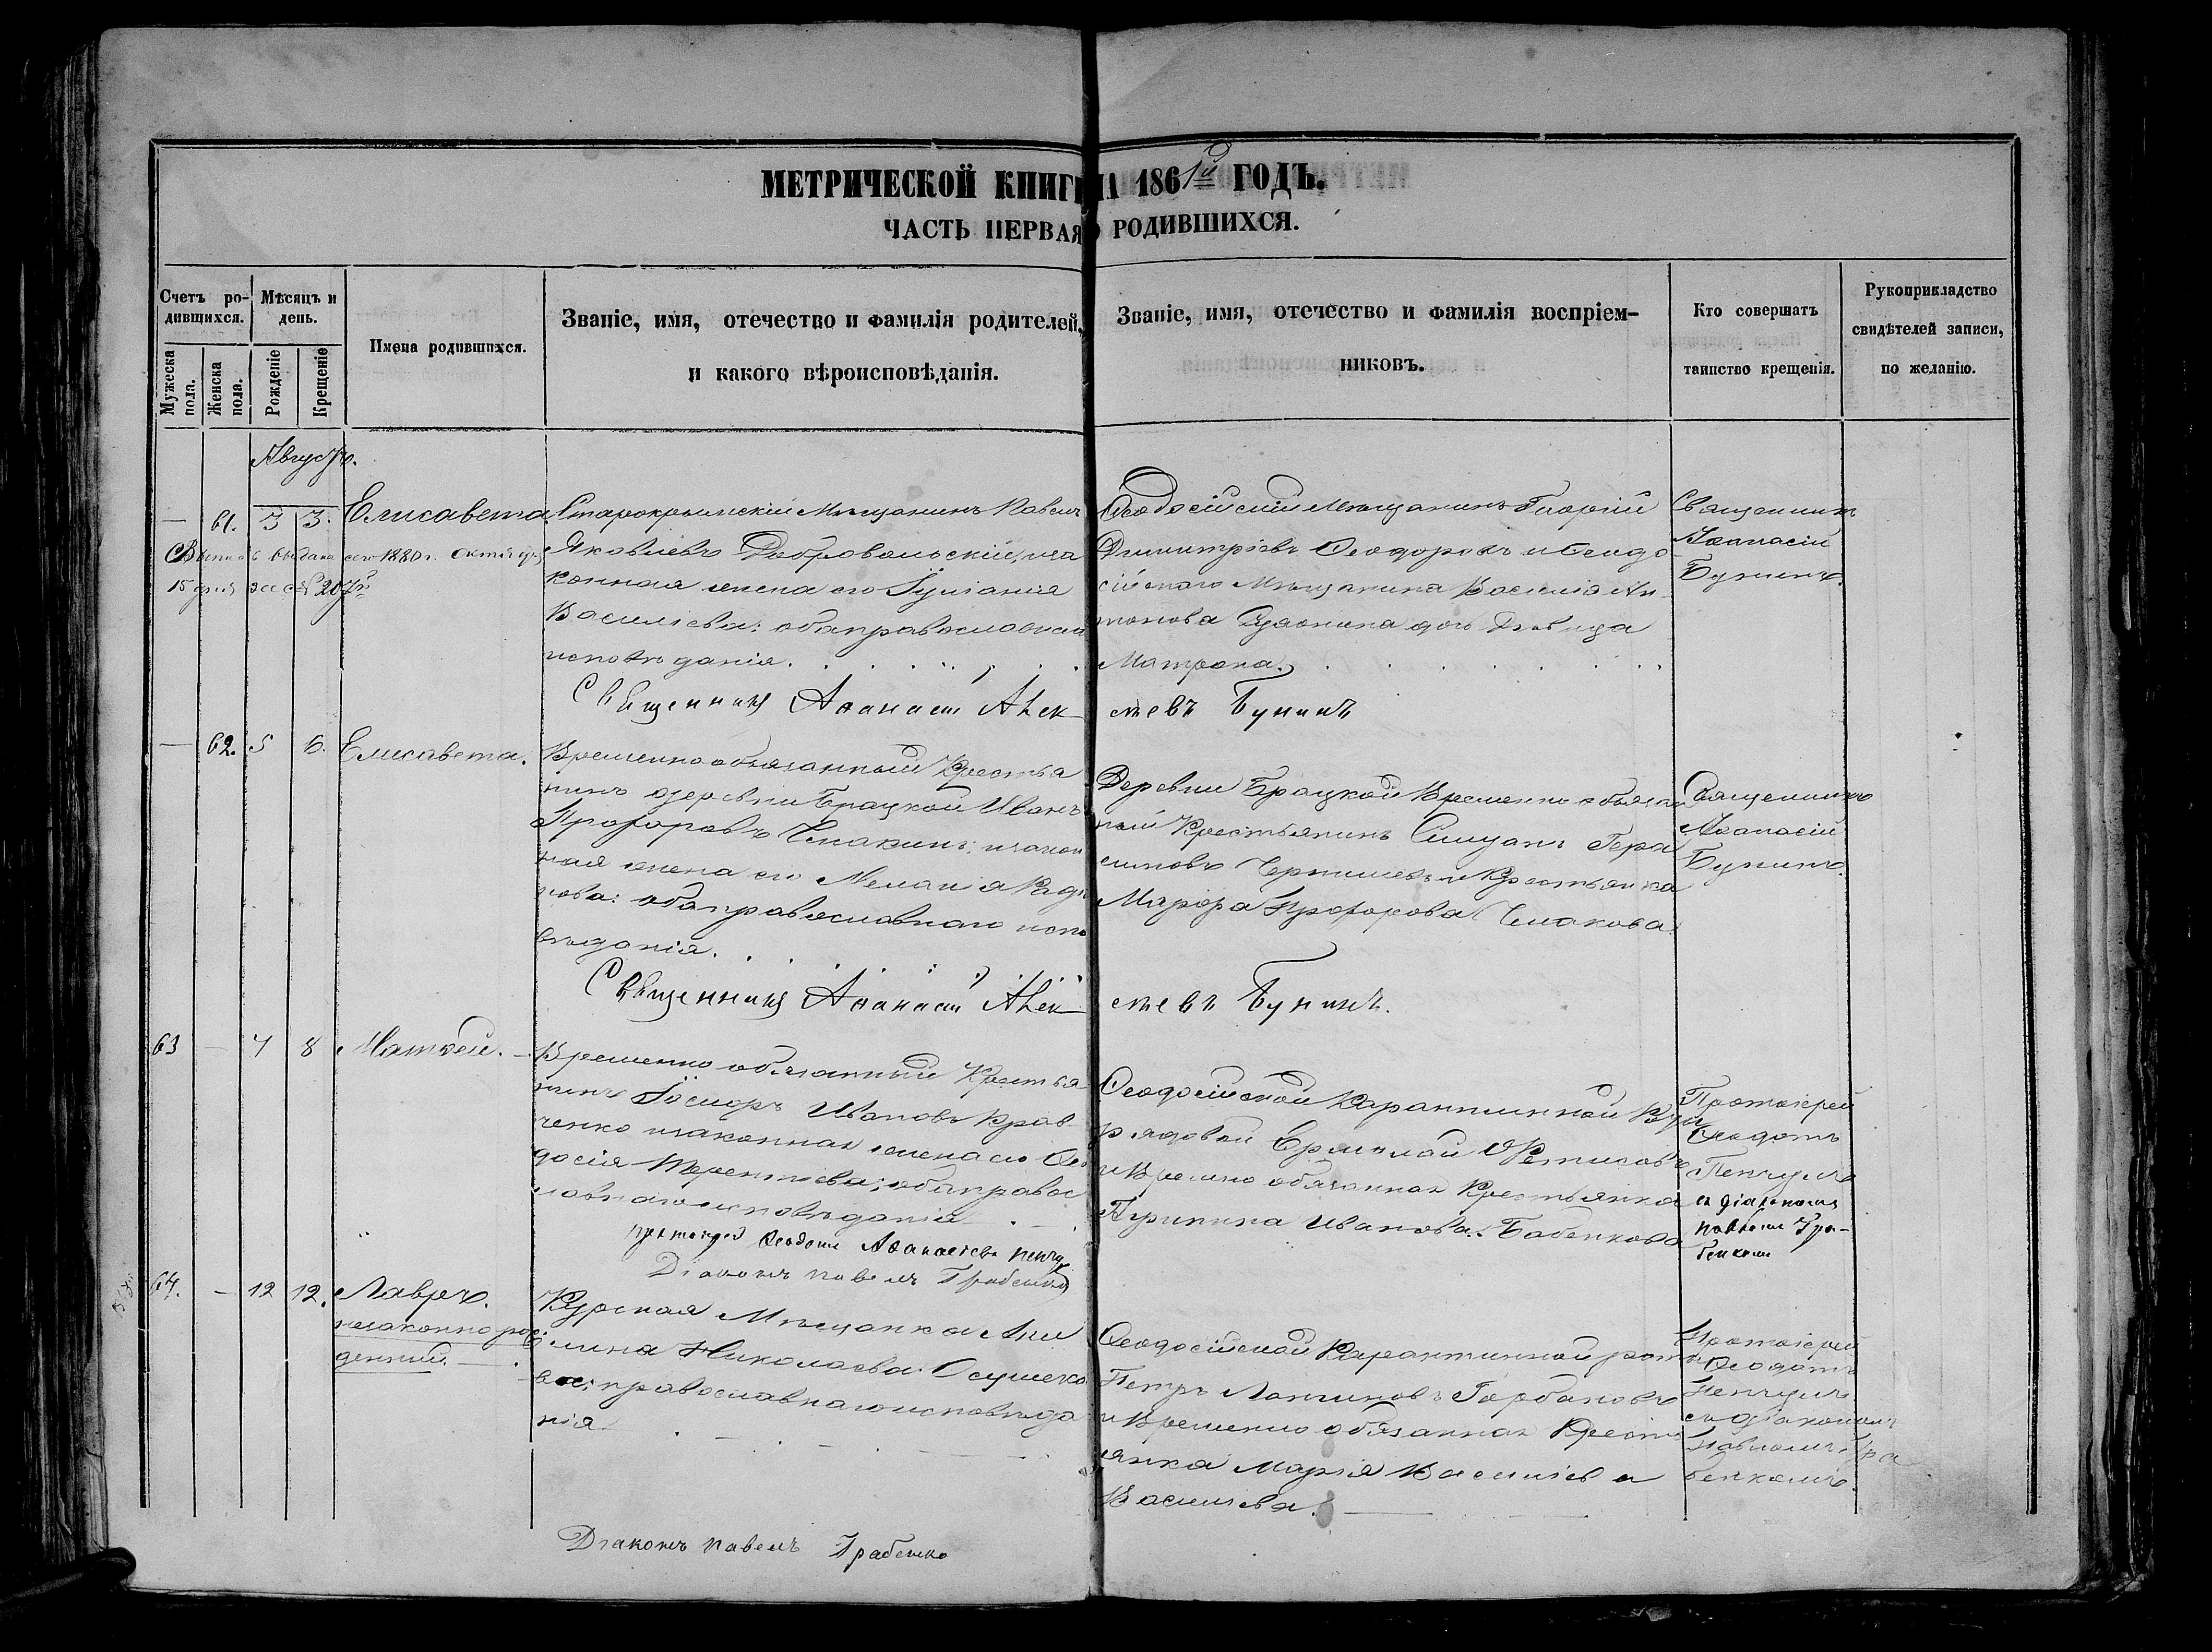 МЕТРИЧЕСКОЙ КНИГИ НА 1861й ГОДЪ.
ЧАСТЬ ПЕРВАЯ О РОДИВШИХСЯ.
Счетъ ро-
дившихся.
Мѣсяцъ и
день.
Мужеска
пола.
Женска
пола.
Рожденіе
Крещеніе
Имена родившихся.
Званіе, имя, отечество и фамилія родителей,
и какого вѣроисповѣданія.
Званіе, имя, отечество и фамилія воспріем-
никовъ.
Кто совершатъ
таинство крещенія.
Рукоприкладство
свидѣтелей записи,
по желанію.
Августъ.
— 61. 3 3. Елисавета
выдана 1880 г. Октября
15 дня 207
Старокрымскій Мѣщанинъ Павелъ
Яковлевъ Добровольскій, иза
конная жена его Іуліанія
Василіева: оба православнаго
исповѣданія.
Ѳеодосійскій Мѣщанинъ Георгій
Димитріевъ Ѳеодоровъ и Ѳеодо
сійскаго Мѣщанина Василія Ан
тонова дочь Дѣвица
Матрона.
Священникъ
Аѳанасій
Бунинъ.
Священникъ Аѳанасій Алек
сѣевъ Бунинъ
— 62. 5 6. Елисавета.
Временнообязанный Крестья
нинъ деревни Брацкой Иванъ
Прохоровъ Чмакинъ; и закон
ная жена его Меланія
нова: оба православнаго испо
вѣданія.
Деревни Брацкой Временно обязан
ный Крестьянинъ Гера
симовъ и Крестьянка
Марѳа Прохорова Чмакова.
Священникъ
Аѳанасій
Бунинъ.
Священникъ Аѳанасій Алек
сѣевъ Бунинъ.
63 — 7 8 Матѳей.
Временно обязанный Крестья
нинъ Ивановъ Крав
ченко и законная жена его Ѳео
досія Терентіева; оба правос
лавнаго исповѣданія
Ѳеодосійской Карантинной
рядовой Ермолай
и Времено обязанная Крестьянка
Ивановна Бабенкова
Протоіерей
Ѳеодотъ
Пенчулъ
съ діакономъ
Павломъ Гра-
бенкомъ
протоіерей Ѳеодотъ Аѳанасіевъ Пенчу
Діаконъ Павелъ Грабенко
64. — 12 12. Лавръ.
незаконно рож
денный.
Курская Мѣщанка Аки
лина Николаева
ва; православнаго исповѣда
нія
Ѳеодосійской Карантинной роты
Петръ Горбановъ
и Временно обязанная Крестъ
янка Марія Василіева
Васильева.
Протоіерей
Ѳеодотъ
Пенчулъ
съ діакономъ
Павломъ Гра
бенкомъ.
Діаконъ Павелъ Грабенко